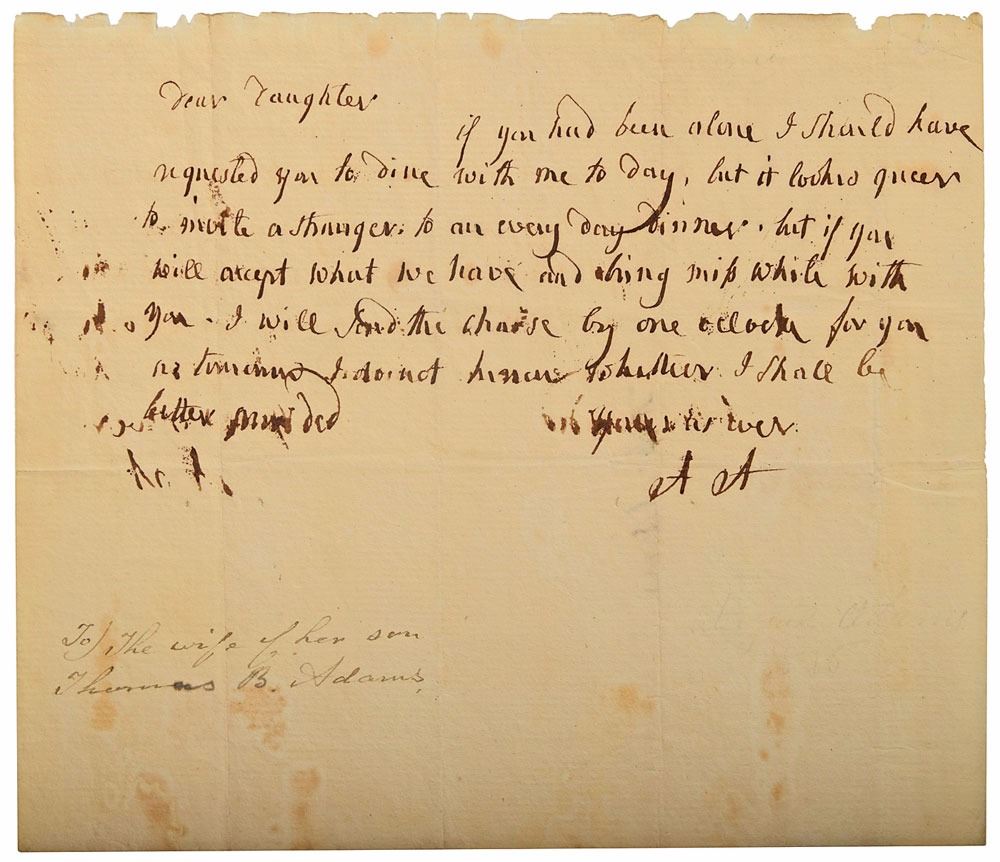 Dear Daughter
if you had been alone I should have
requested you to dine with me to day, but it looks queer
to invite a stranger to an every day Dinner. but if you
will accept what we have and bring miss White with
you. I will send the chaise by one oclock for you
as tomorrow I do not know whether I shall be
better provided
yours as ever
A A
To) The wife of her son
Thomas B. Adams.